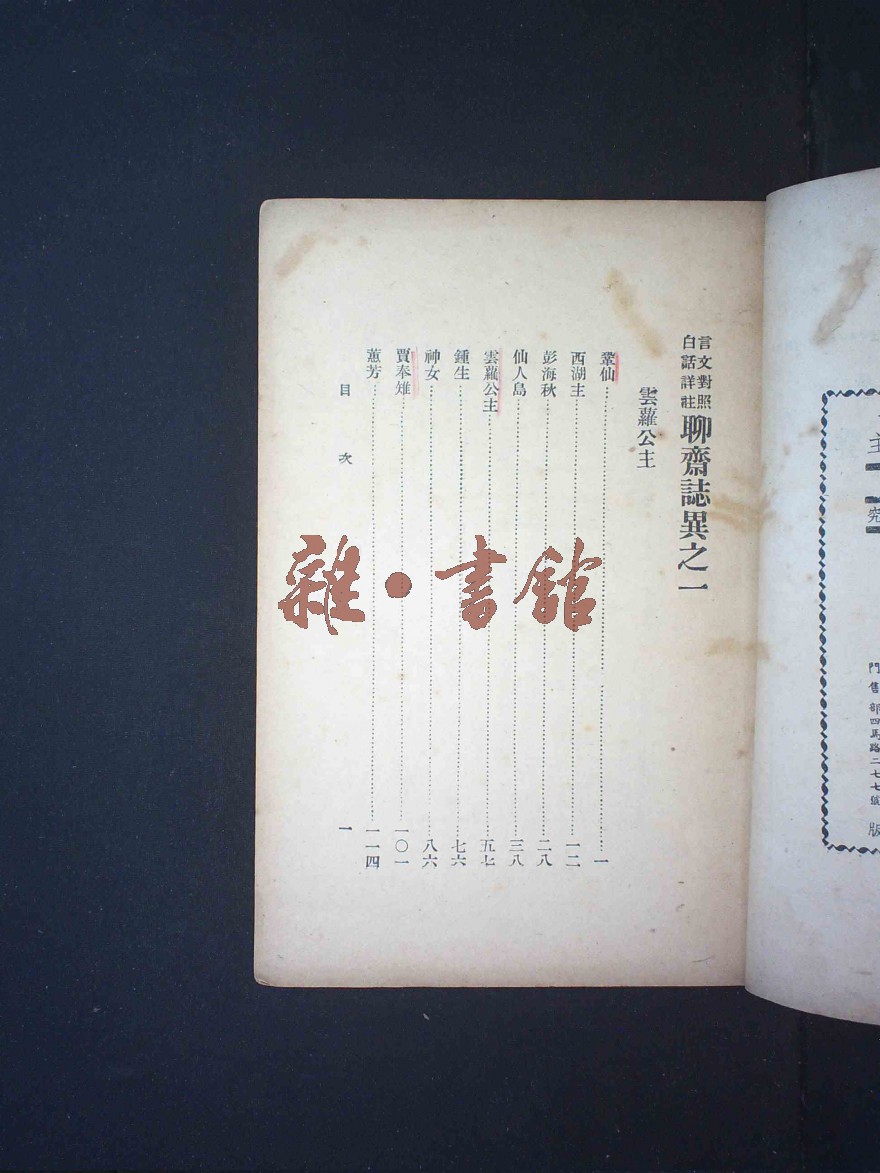 言文對照
白話詳註
聊齋誌異之一
雲蘿公主
鞏仙 一
西湖主 一二
彭海秋 二八
仙人島 三八
雲蘿公主 五七
鍾生 七六
神女 八六
賈奉雉 一〇一
蕙芳 一一四
目次 一
雜·書館
主
門售部四馬路二七七號
版